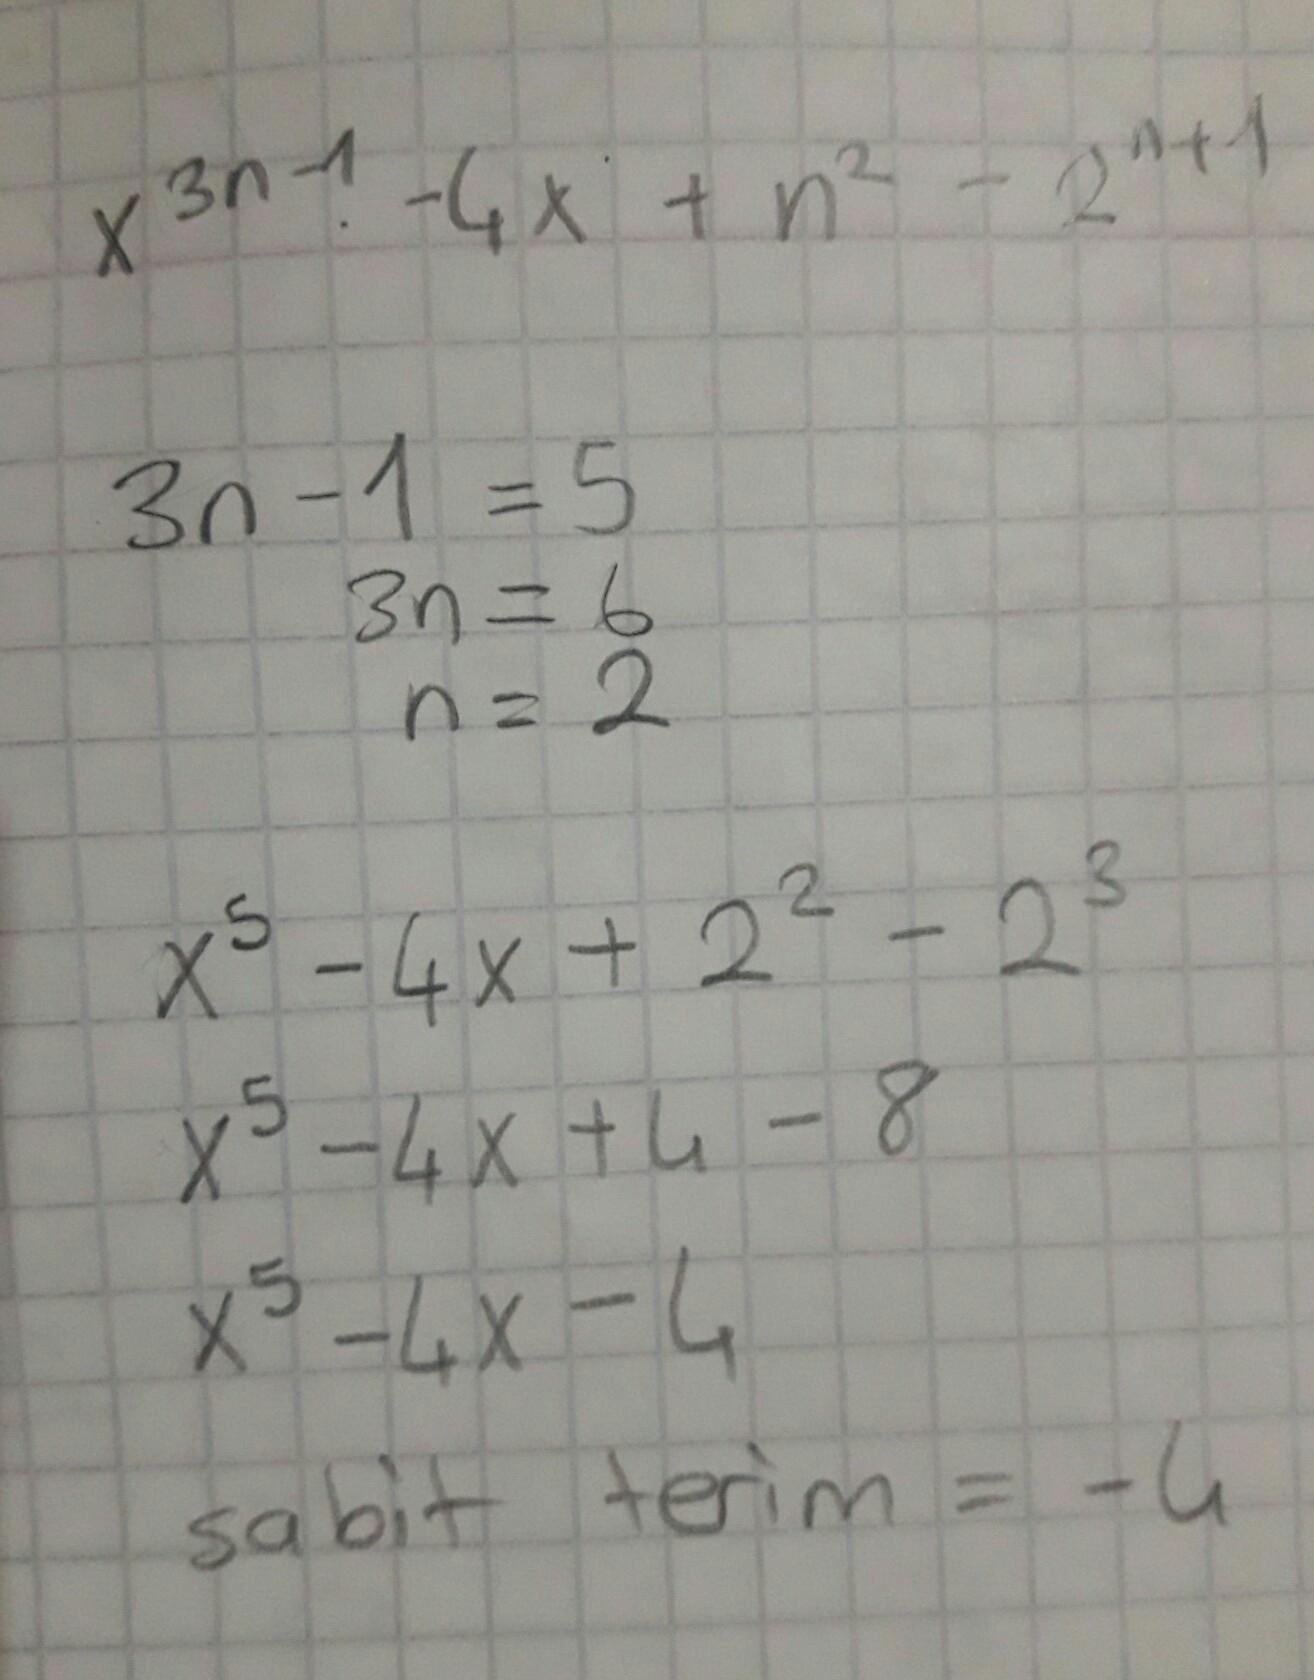 x^{3n-1} -4x + n² - 2^{n+1}
3n - 1 = 5
3n = 6
n = 2
x⁵ - 4x + 2² - 2³
x⁵ - 4x + 4 - 8
x⁵ - 4x - 4
sabit terim = -4